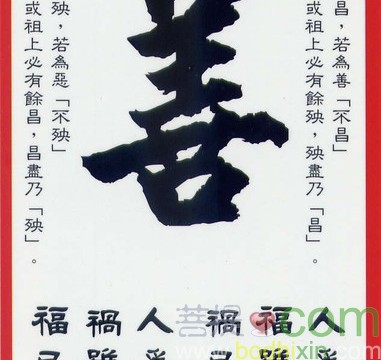 昌，若為善「不昌」
或祖上必有餘殃，殃盡乃「昌」。
善
殃，若為惡「不殃」
或祖上必有餘昌，昌盡乃「殃」。
人
福
禍
人
禍
福
菩提
com
www.bodhixin.com